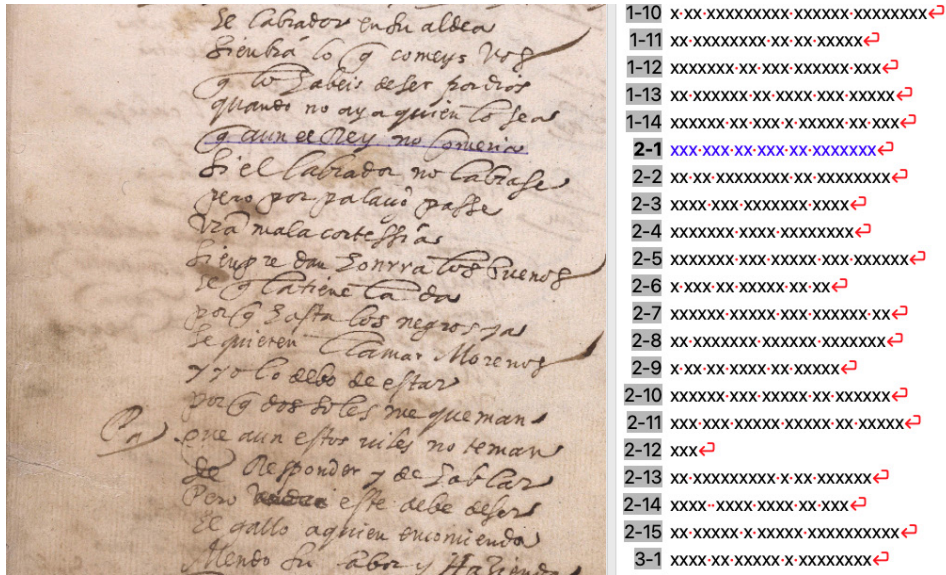 Se labrador en su aldea
siembra lo q comeys vos
q lo habeis de ser por dios
quando no aya quien lo sea
q aun el Rey no comeria
Si el labrador no labrase
pero por palacio passe
vra mala cortessia
siempre dan honrra los buenos
se q la tiene la da
porq hasta los negros ya
se quieren llamar Morenos
y yo lo debo de estar
porq dos soles me queman
que aun estos viles no teman
de Responder y de hablar
Pero este debe de ser
El gallo aquien encomienda
Mendo su labor y Hazienda
1-10 x·xx·xxxxxxxxx·xxxxxx·xxxxxxxx
1-11 xx·xxxxxxxx·xx·xx·xxxxx
1-12 xxxxxxx·xx·xxx·xxxxxx·xxx
1-13 xx·xxxxxx·xx·xxxx·xxx·xxxxx
1-14 xxxxxx·xx·xxx·x·xxxxx·xx·xxx
2-1 xxx·xxx·xx·xxx·xx·xxxxxxx
2-2 xx·xx·xxxxxxxx·xx·xxxxxxxx
2-3 xxxx·xxx·xxxxxxx·xxxx
2-4 xxxxxxx·xxxx·xxxxxxxx
2-5 xxxxxxx·xxx·xxxxx·xxx·xxxxxx
2-6 x·xxx·xx·xxxxx·xx·xx
2-7 xxxxxx·xxxxx·xxx·xxxxxx·xx
2-8 xxxxxx·xxxxxxx·xxxxxxx
2-9 x·xx·xx·xxxx·xx·xxxxx
2-10 xxxxxx·xxx·xxxxx·xx·xxxxxx
2-11 xxx·xxx·xxxxx·xxxxx·xx·xxxxx
2-12 xxx
2-13 xx·xxxxxxxxx·x·xx·xxxxxxx
2-14 xxxx··xxxx·xxxx·xx·xxx
2-15 xx·xxxxx·x·xxxxx·xxxxxxxxxx
3-1 xxxx·xx·xxxxx·x·xxxxxxxx